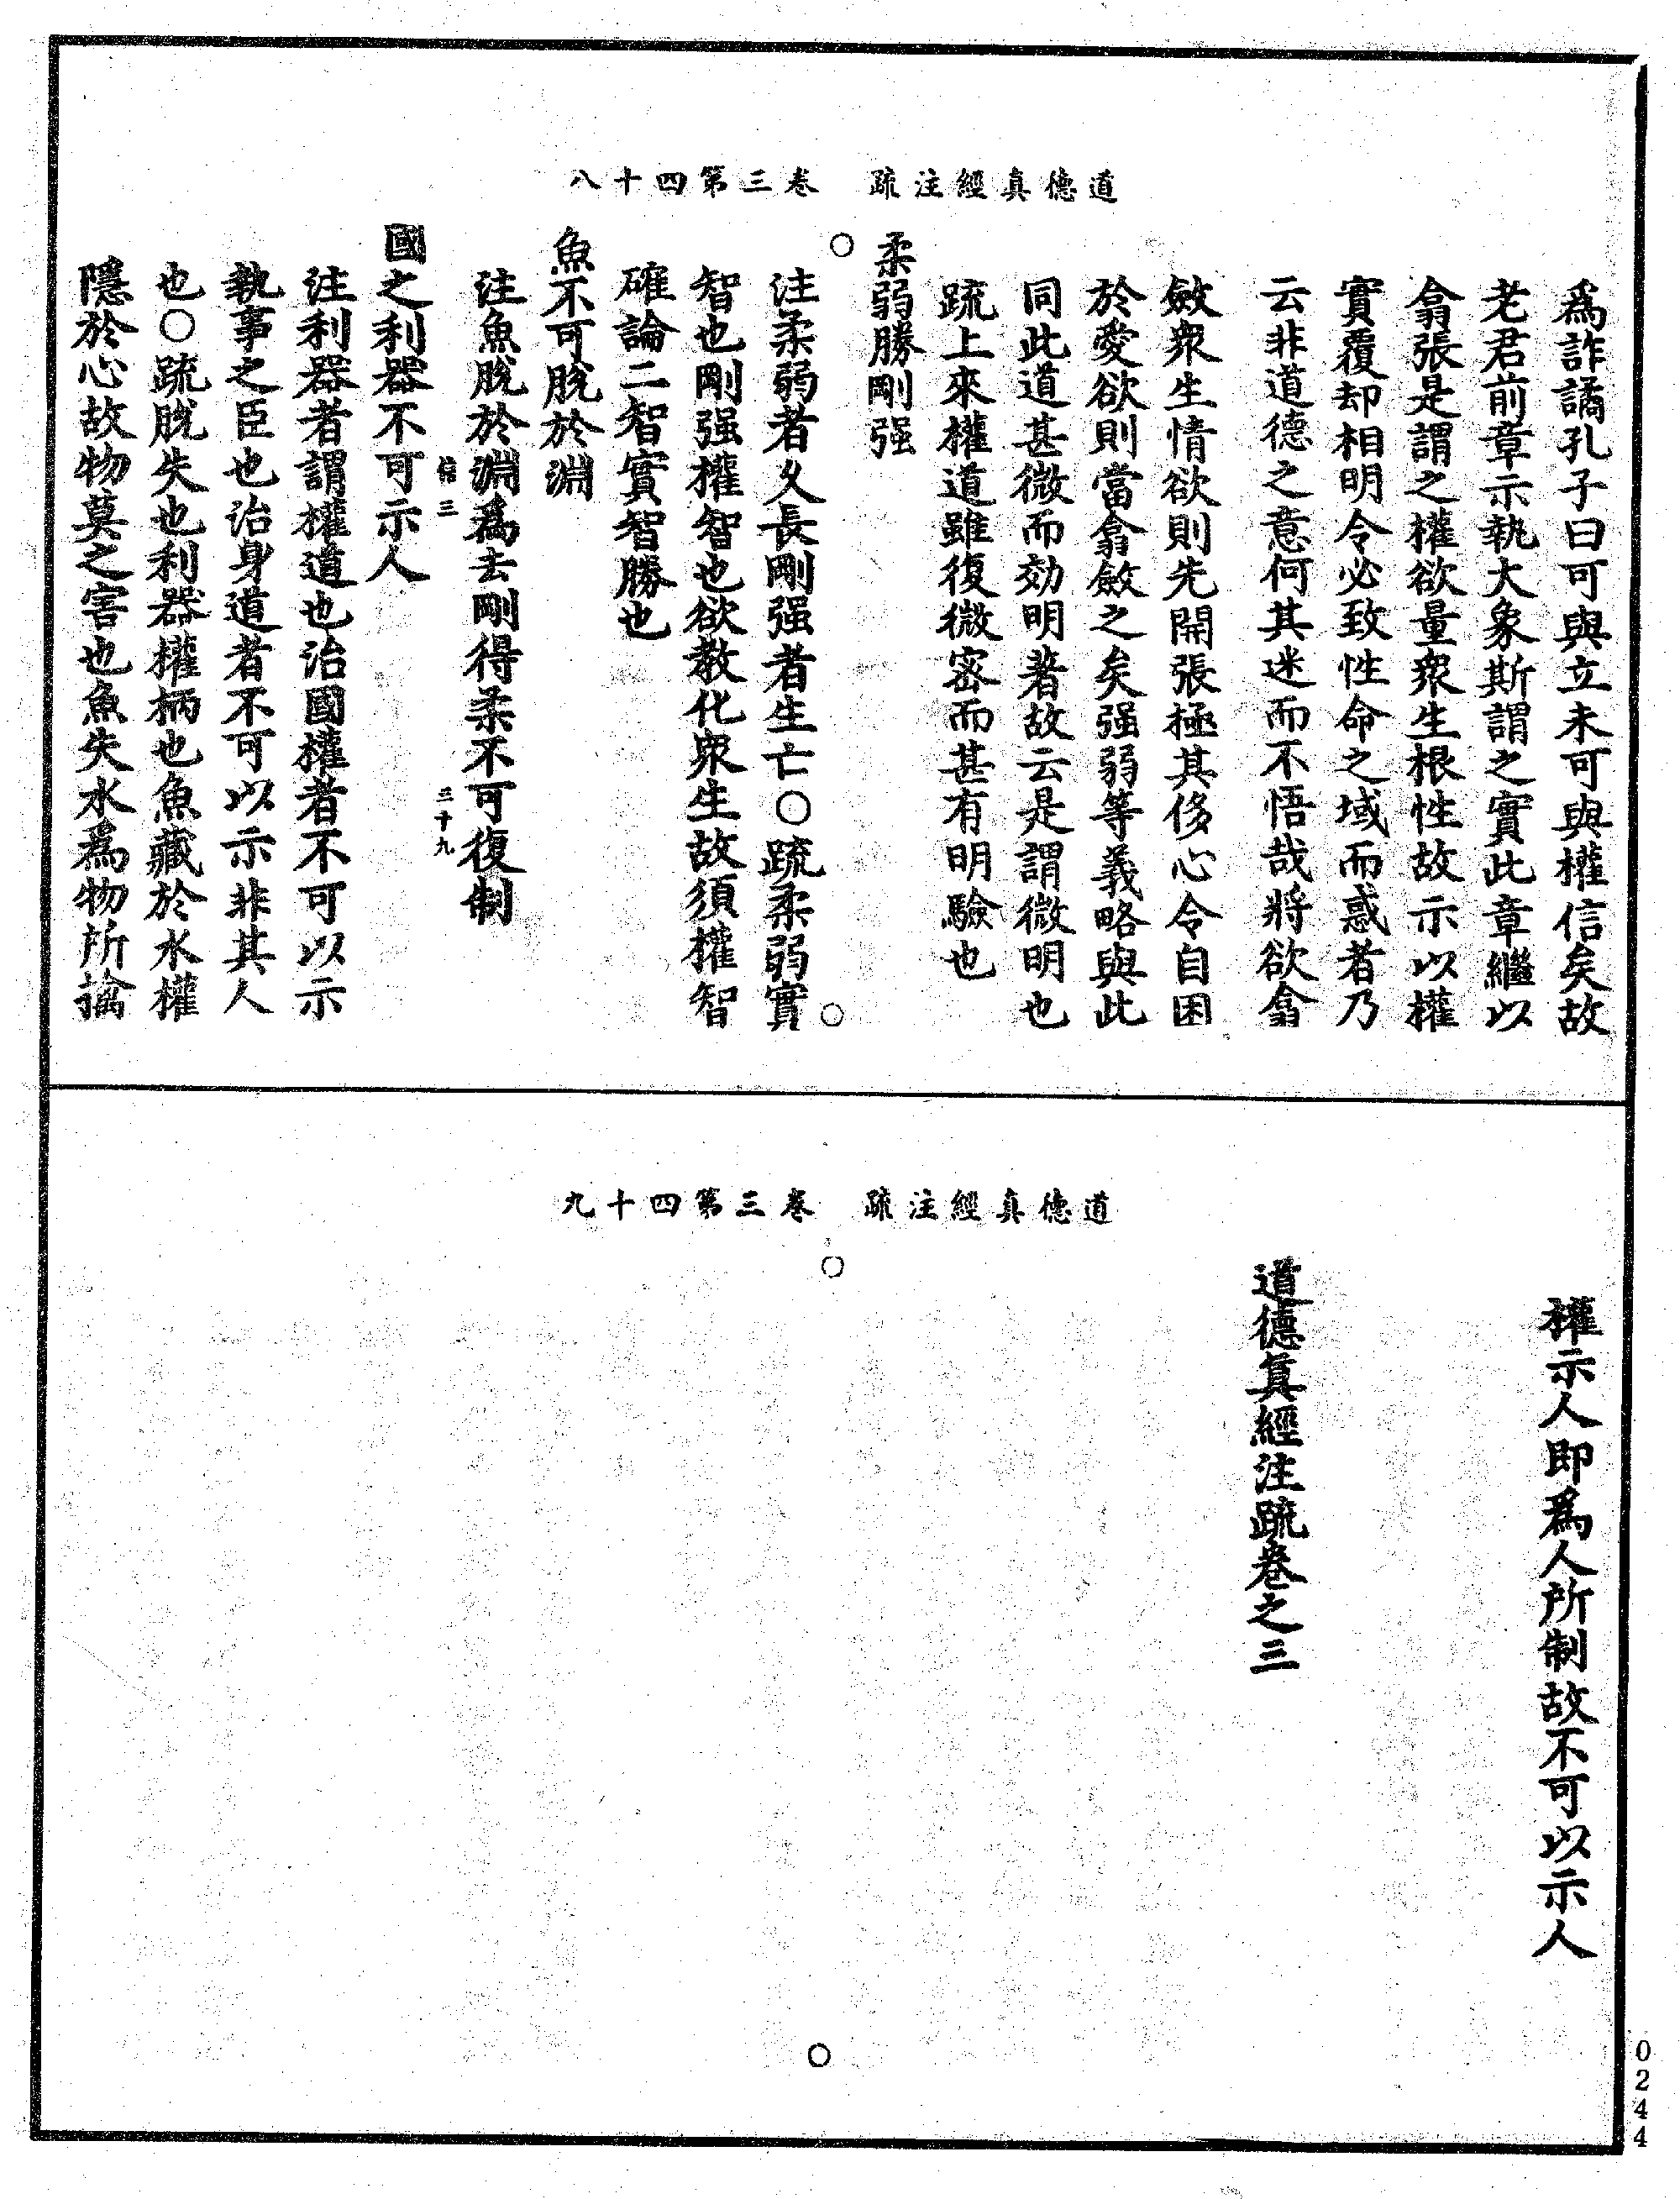 道德真經注疏　卷三第四十八
爲詐譎孔子曰可與立未可與權信矣故
老君前章示執大象斯謂之實此章繼以
翕張是謂之權欲量衆生根性故示以權
實覆却相明令必致性命之域而惑者乃
云非道德之意何其迷而不悟哉將欲翕
斂衆生情欲則先開張極其侈心令自困
於愛欲則當翕斂之矣强弱等義略與此
同此道甚微而効明著故云是謂微明也
疏上來權道雖復微密而甚有明驗也
柔弱勝剛强
注柔弱者久長剛强者生亡○疏柔弱實
智也剛强權智也欲教化衆生故須權智
確論二智實智勝也
魚不可脫於淵
注魚脫於淵爲去剛得柔不可復制
信三　三十九
國之利器不可示人
注利器者謂權道也治國權者不可以示
執事之臣也治身道者不可以示非其人
也○疏脫失也利器權柄也魚藏於水權
隱於心故物莫之害也魚失水爲物所擒
道德真經注疏　卷三第四十九
權示人即爲人所制故不可以示人
道德眞經注疏卷之三
0244